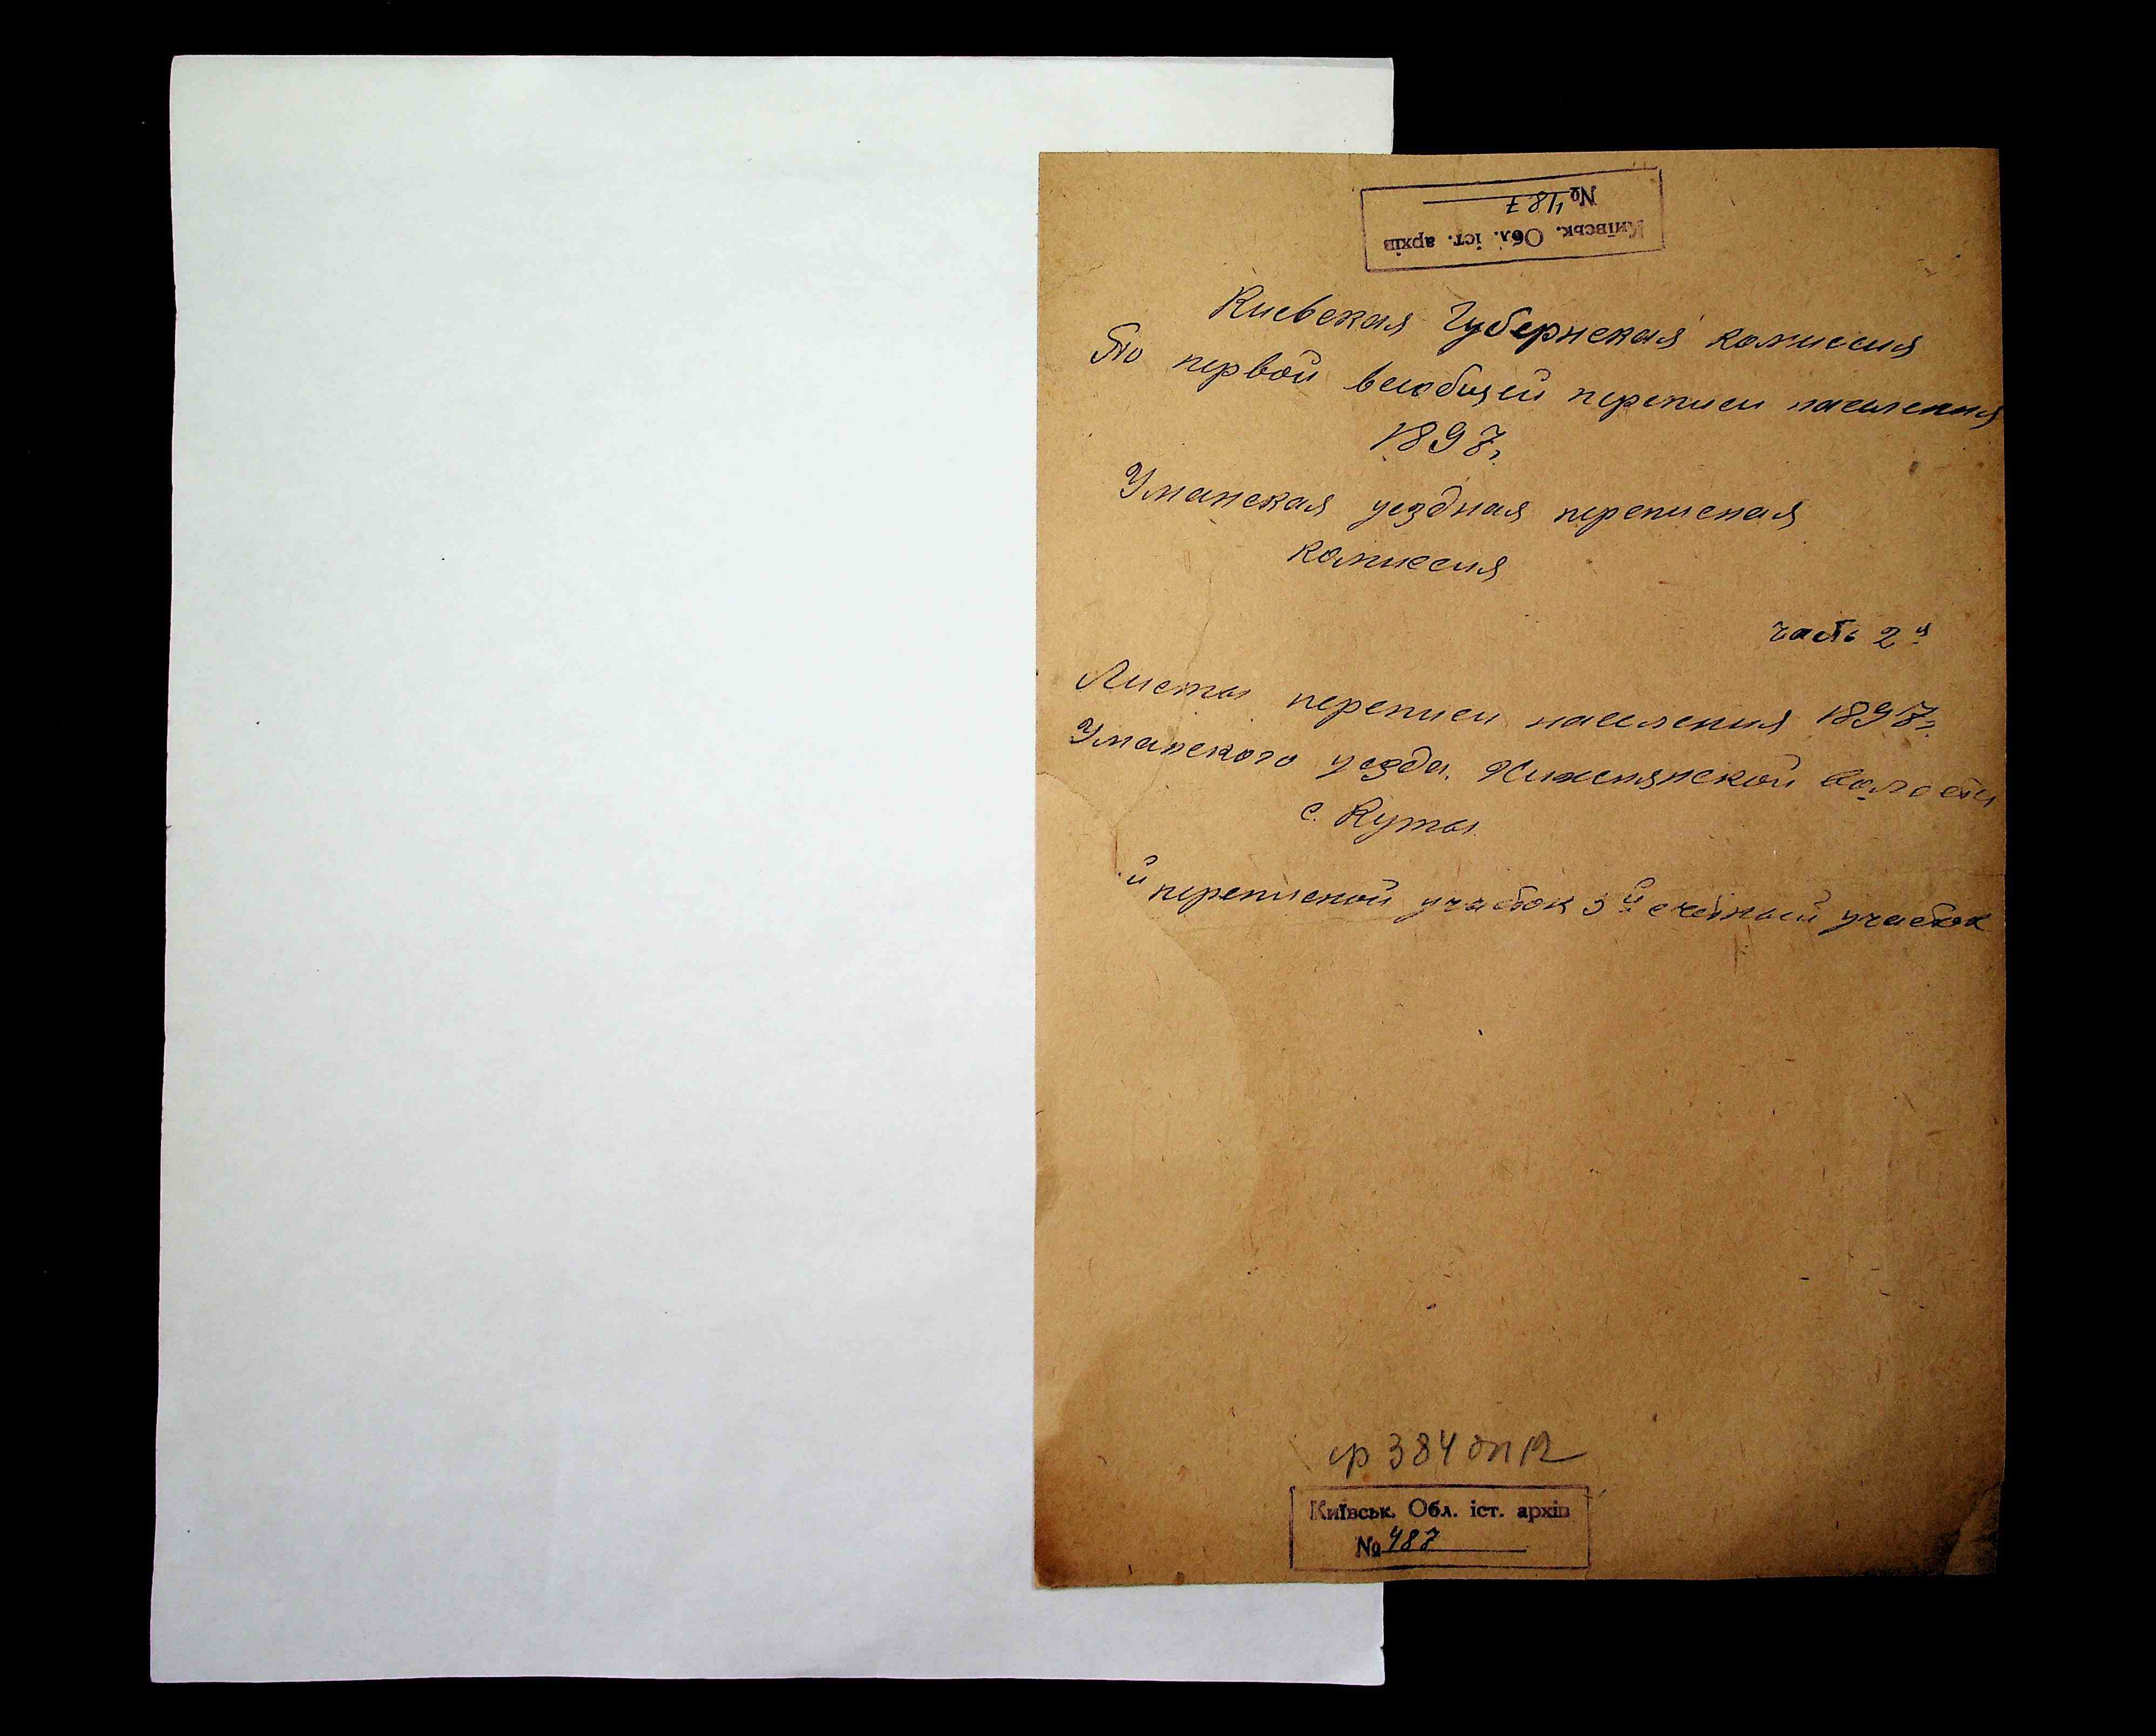 Київськ. Обл. іст. архів
№ 487
Киевская Губернская комиссия
По первой всеобщей переписи населения
1897г.
Уманская уездная переписная
комиссия
часть 2я
Листы переписи населения 1897г.
Уманского уезда. волости
с. Куты.
й переписной участок 5й счетный участок
ф 384 оп 12
Київськ. Обл. іст. архів
№ 487